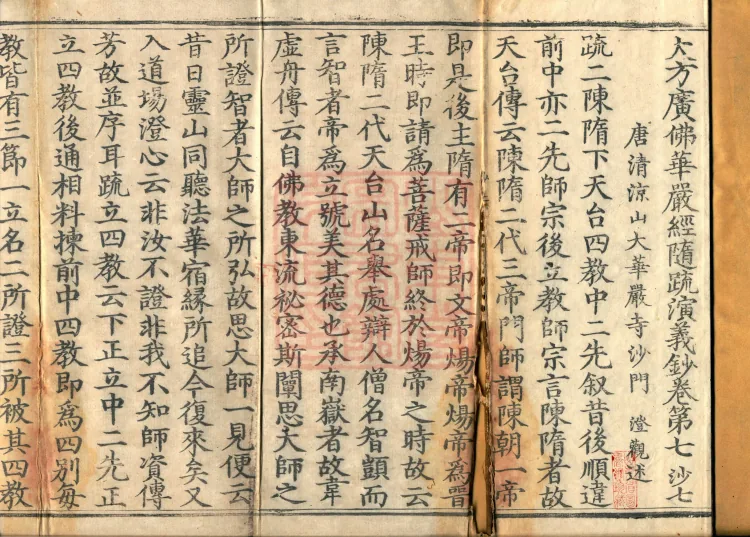 大方廣佛華嚴經隨疏演義鈔卷第七 沙七
唐清涼山大華嚴寺沙門 澄觀述
疏二陳隋下天台四教中二先叙昔後順違
前中亦二先師宗後立教師宗言陳隋者故
天台傳云陳隋二代三帝門師謂陳朝一帝
即是後主隋有二帝即文帝煬帝煬帝為晋
王時即請為菩薩戒師終於煬帝之時故云
陳隋二代天台山名舉處辯人僧名智顗而
言智者帝為立號美其德也承南嶽者故韋
虛舟傳云自佛教東流秘密斯闡思大師之
所證智者大師之所弘故思大師一見便云
昔日靈山同聽法華宿緣所追今復來矣又
入道場澄心云非汝不證非我不知師資傳
芳故並序耳疏立四教云下正立中二先正
立四教後通相料揀前中四教即為四別毎
教皆有三節一立名二所證三所被其四教